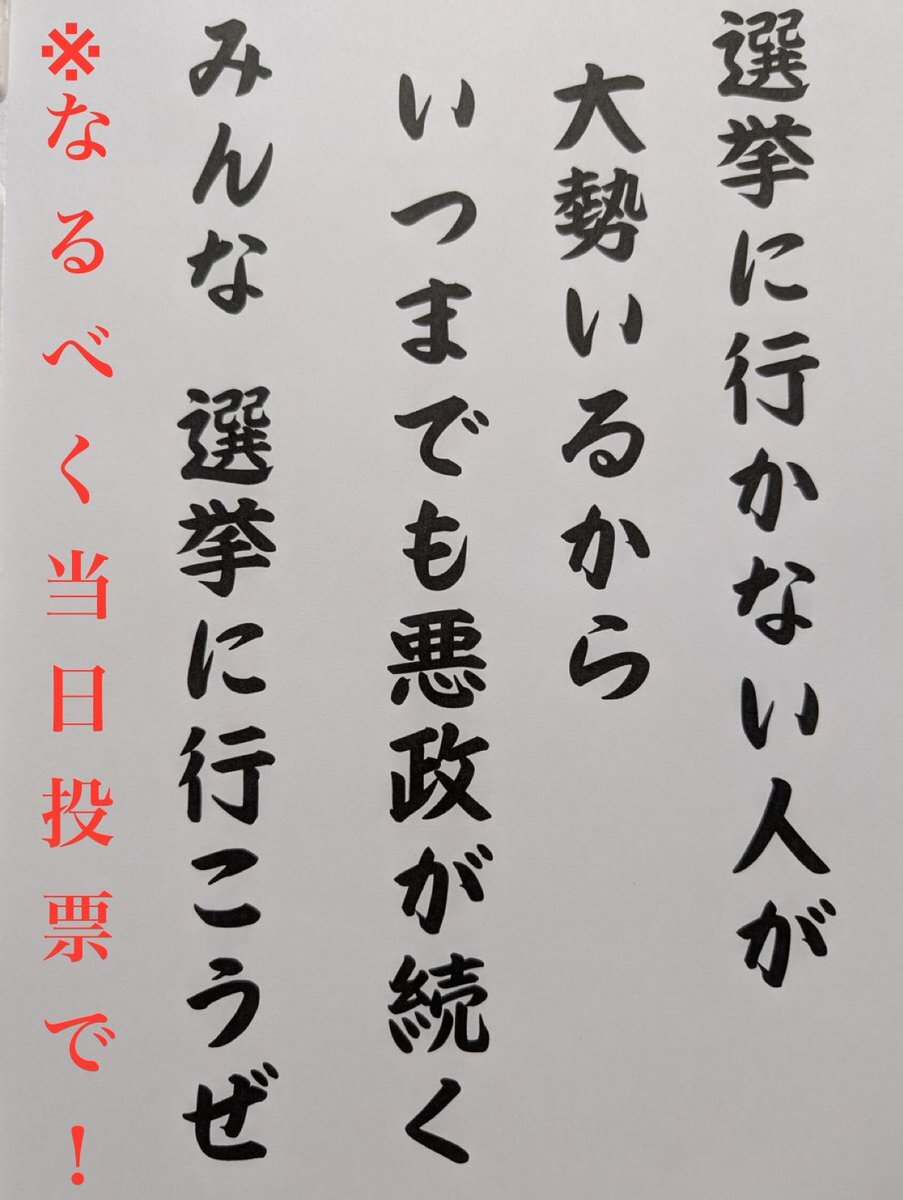 選挙に行かない人が
大勢いるから
いつまでも悪政が続く
みんな 選挙に行こうぜ
※なるべく当日投票で!